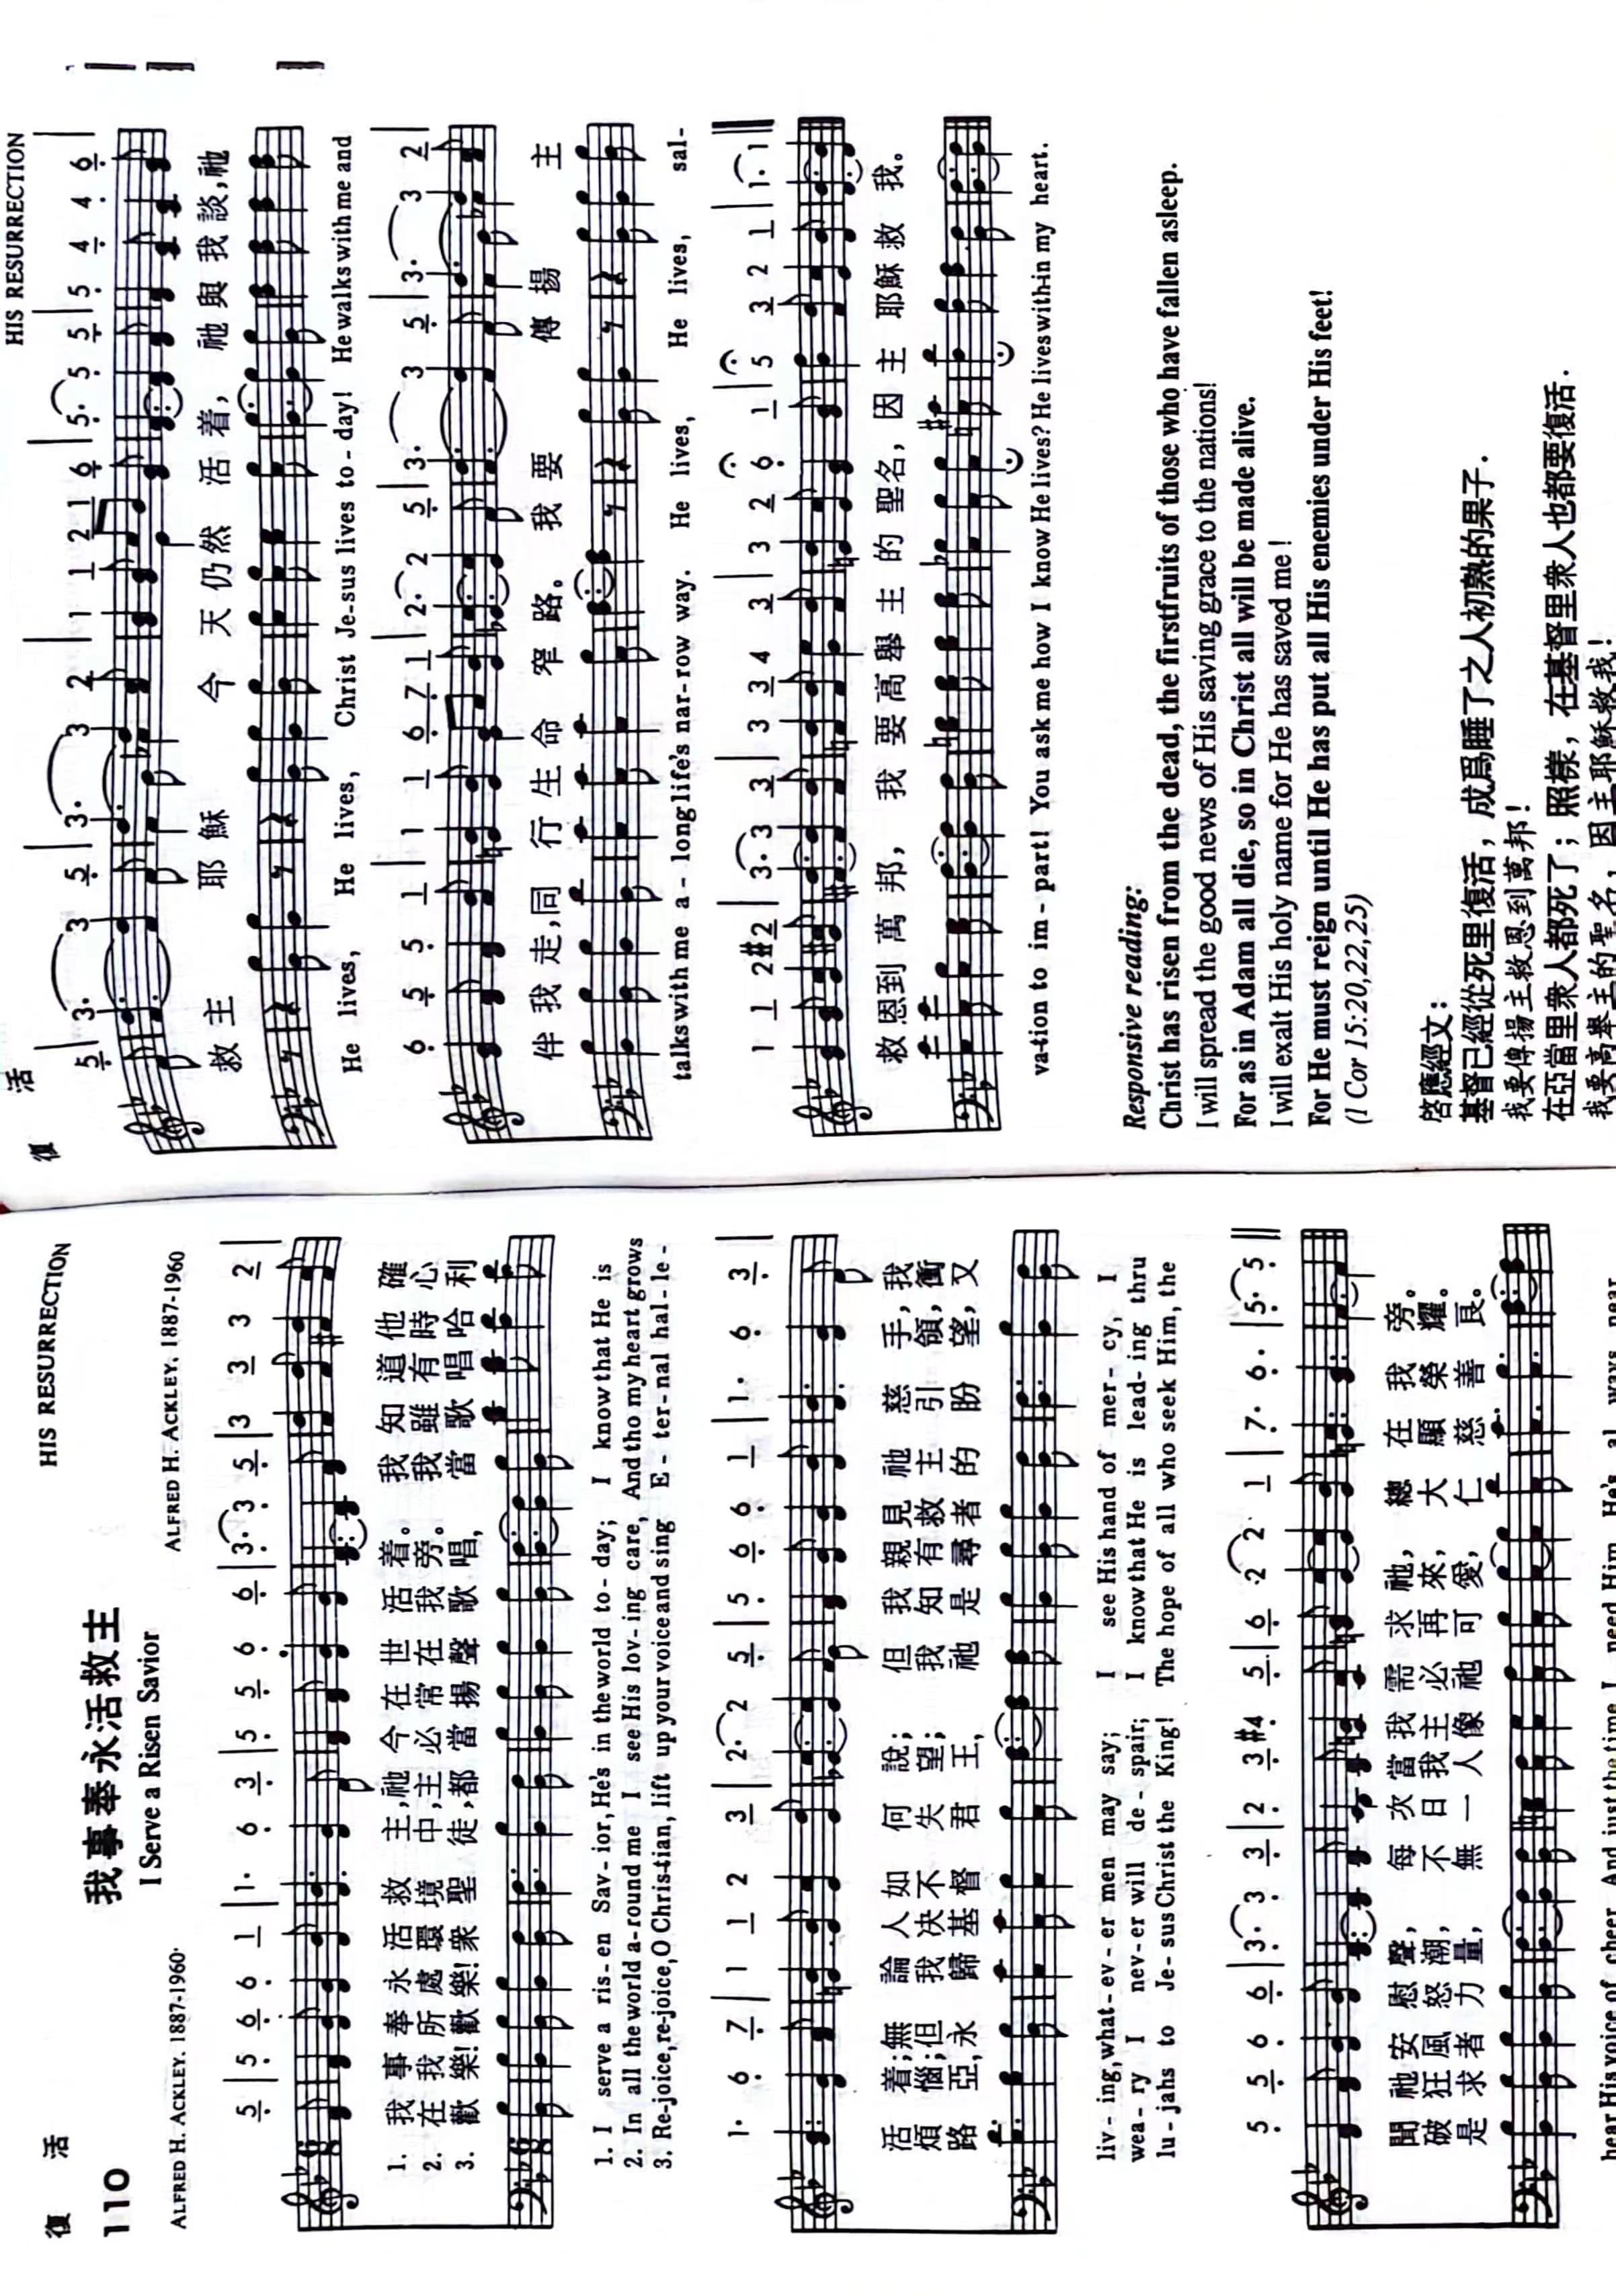 復 活
HIS RESURRECTION
110
我事奉永活救主
I Serve a Risen Savior
ALFRED H. ACKLEY, 1887-1960
ALFRED H. ACKLEY, 1887-1960
1. 我事奉永活救主,祂今在世活着。我知道他確
2. 在我所處環境中,主必常在我旁。我雖有時心
3. 歡樂!歡樂!衆聖徒,都當揚聲歌唱,當歌唱哈利
1. I serve a ris-en Sav-ior, He's in the world to-day; I know that He is
2. In all the world a-round me I see His lov-ing care, And tho my heart grows
3. Re-joice, re-joice, O Chris-tian, lift up your voice and sing E-ter-nal hal-le-
活着;無論人如何說;但我親見祂慈手,我
煩惱;但我決不失望;我知有救主引領,衝
路亞,永歸基督君王,祂是尋者的盼望,又
liv-ing, what-ev-er men may say; I see His hand of mer-cy, I
wea-ry I nev-er will de-spair; I know that He is lead-ing thru
lu-jahs to Je-sus Christ the King! The hope of all who seek Him, the
聞祂安慰聲,每次當我需求祂,總在我旁。
破狂風怒潮,不日我主必再來,大顯榮耀。
是求者力量,無一人像祂可愛,仁慈善良。
hear His voice of cheer, And just the time I need Him He's al-ways near.
復 活
HIS RESURRECTION
救主耶穌今天仍然活着,祂與我談,祂
He lives, He lives, Christ Je-sus lives to-day! He walks with me and
伴我走,同行生命窄路。我要傳揚主
talks with me a-long life's nar-row way. He lives, He lives, sal-
救恩到萬邦,我要高舉主的聖名,因主耶穌救我。
va-tion to im-part! You ask me how I know He lives? He lives with-in my heart.
Responsive reading:
Christ has risen from the dead, the firstfruits of those who have fallen asleep.
I will spread the good news of His saving grace to the nations!
For as in Adam all die, so in Christ all will be made alive.
I will exalt His holy name for He has saved me!
For He must reign until He has put all His enemies under His feet!
(1 Cor 15:20,22,25)
啓應經文:
基督已經從死里復活,成爲睡了之人初熟的果子.
我要傳揚主救恩到萬邦!
在亞當里衆人都死了;照樣,在基督里衆人也都要復活.
我要高舉主的聖名,因主耶穌救我!